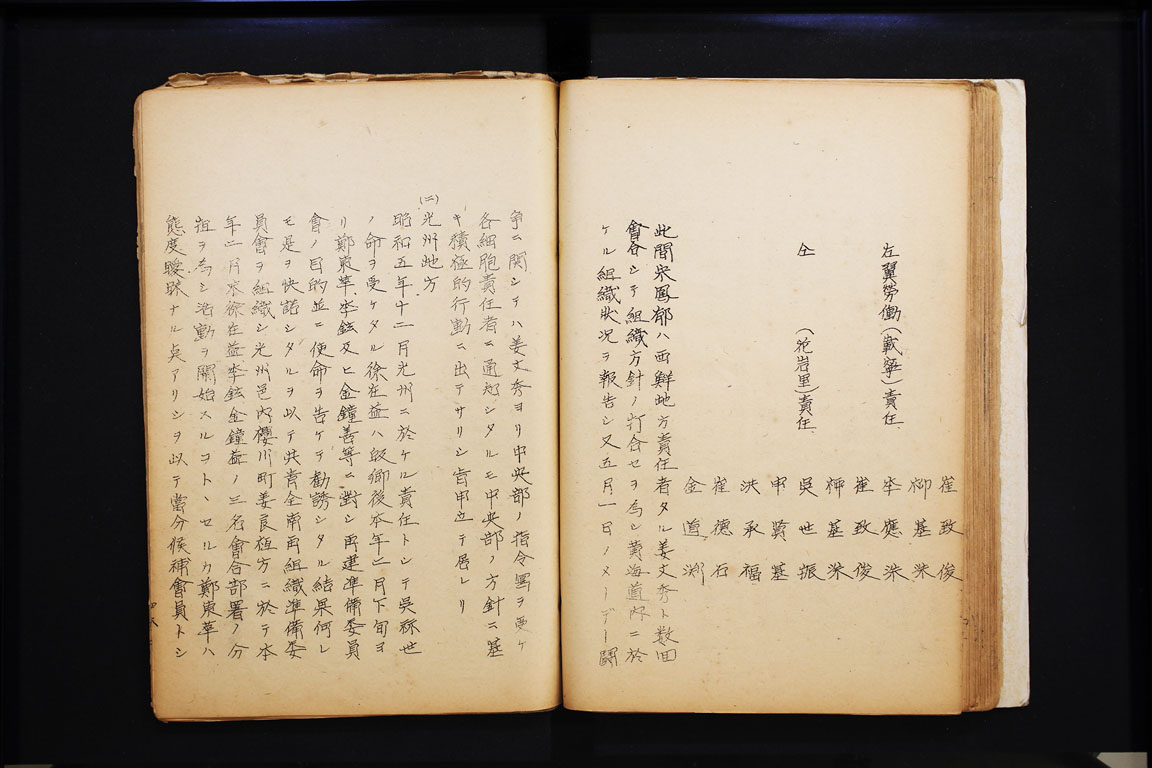 崔致俊
柳基洙
左翼勞働(載寧)責任 李應洙
崔致俊
柳基洙
仝 (花岩里)責任 吳世振
申賢基
洪承福
崔德石
金道渊
此間宋鳳郁ハ西鮮地方責任者タル姜文秀ト数回
會合シテ組織方針ノ打合セヲ為シ黄海道内ニ於
ケル組織狀况ヲ報告シ又五月一日ノメーデー鬪
争ニ関シテハ姜文秀ヨリ中央部ノ指令冩ヲ受ケ
各細胞責任者ニ通知シタルモ中央部ノ方針ニ基
キ積極的行動ニ出テサリシ旨申立テ居レリ
(二)光州地方
昭和五年十二月光州ニ於ケル責任トシテ吳祘世
ノ命ヲ受ケタル徐在益ハ皈鄉後本年二月下旬ヨ
リ鄭東華、李鉉及ヒ金鐘善等ニ對シ再建準備委員
會ノ目的並ニ使命ヲ告ケテ勸誘シタル結果何レ
モ是ヲ快諾シタルヲ以テ共青全南再組織準備委
員會ヲ組織シ光州邑内櫻川町姜良恒方ニ於テ本
年二月末徐在益李鉉金鐘益ノ三名會合部署ノ分
担ヲ為シ活動ヲ開始スルコトヽセルカ鄭東華ハ
態度曖昧ナル点アリシヲ以テ當分候補會員トシ